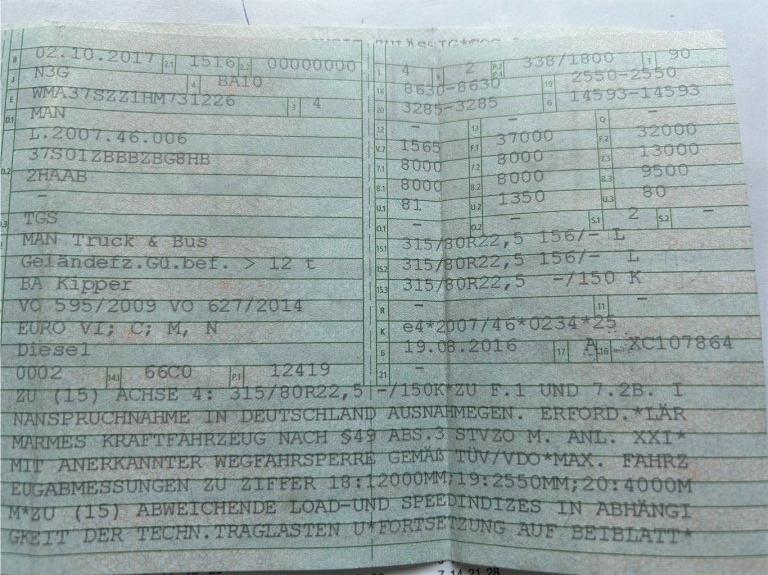 B 02.10.2017 2.1 1516 2.2 00000000
J N3G 4 BA10
E WMA37SZZ1HM731226 3 4
D.1 MAN
L.2007.46.006
37S01ZBBBZBG8HB
D.2 2HAAB
-
D.3 TGS
MAN Truck & Bus
Geländefz.Gü.bef. > 12 t
BA Kipper
VO 595/2009 VO 627/2014
EURO VI; C; M, N
Diesel
0002 14.1 66C0 P.1 12419
L 4 9 2 P.2 P.4 338/1800 T 90
18 8630-8630 19 2550-2550
20 3285-3285 G 14593-14593
12 - 13 - Q -
V.7 1565 F.1 37000 F.2 32000
7.1 8000 7.2 8000 7.3 13000
8.1 8000 8.2 8000 8.3 9500
U.1 81 U.2 1350 U.3 80
O.1 - O.2 - S.1 2 S.2 -
15.1 315/80R22,5 156/- L
15.2 315/80R22,5 156/- L
15.3 315/80R22,5 -/150 K
R - 11 -
K e4*2007/46*0234*25
6 19.08.2016 17 A 16 XC107864
21 -
ZU (15) ACHSE 4: 315/80R22,5 -/150K*ZU F.1 UND 7.2B. I
NANSPRUCHNAHME IN DEUTSCHLAND AUSNAHMEGEN. ERFORD.*LÄR
MARMES KRAFTFAHRZEUG NACH §49 ABS.3 STVZO M. ANL. XXI*
MIT ANERKANNTER WEGFAHRSPERRE GEMÄß TÜV/VDO*MAX. FAHRZ
EUGABMESSUNGEN ZU ZIFFER 18:12000MM;19:2550MM;20:4000M
M*ZU (15) ABWEICHENDE LOAD-UND SPEEDINDIZES IN ABHÄNGI
GKEIT DER TECHN.TRAGLASTEN U*FORTSETZUNG AUF BEIBLATT*
7 14 21 28